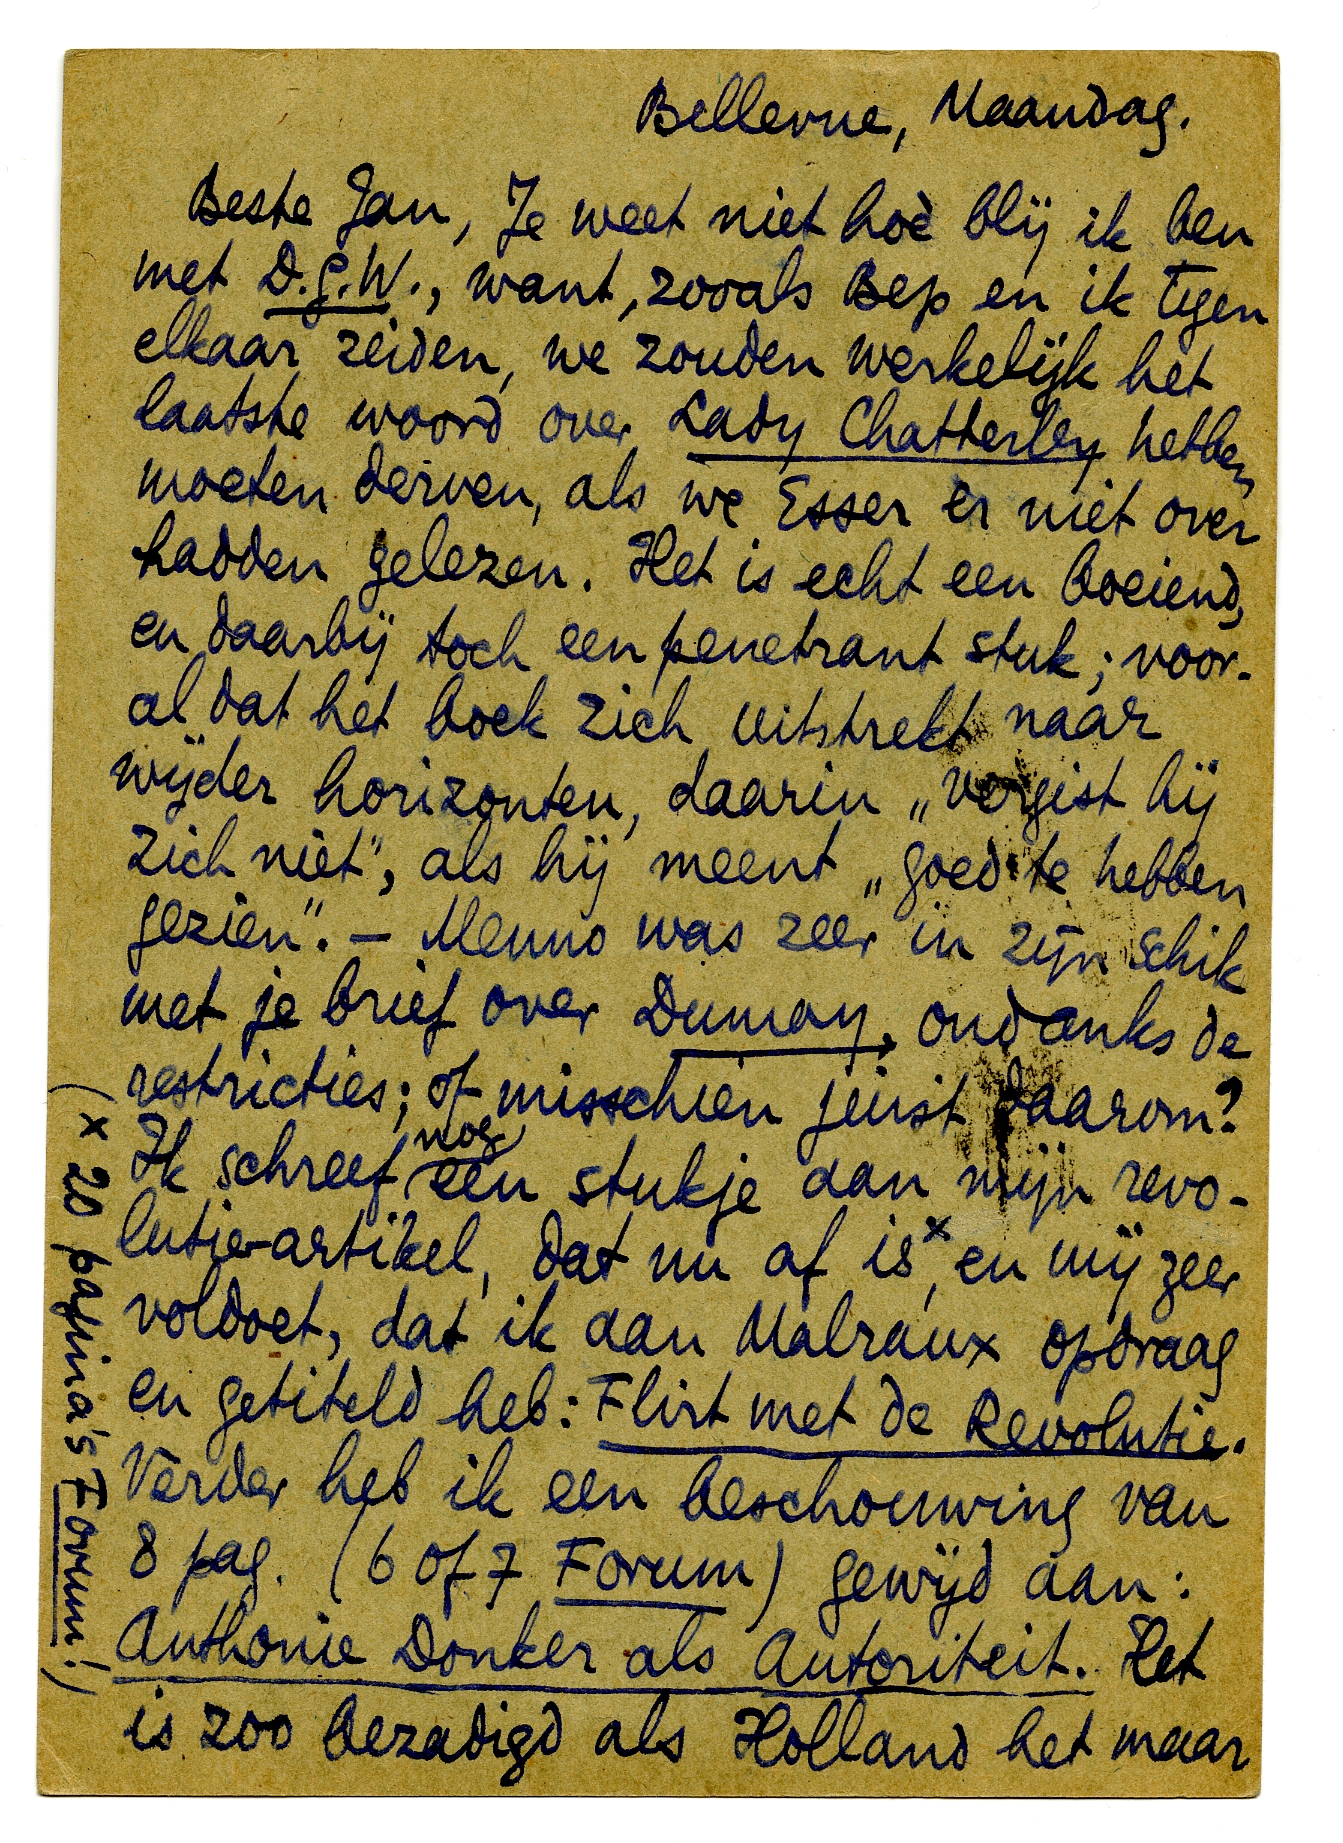 Bellevue, Maandag.
Beste Jan, Je weet niet hoè blij ik ben
met D.G.W., want, zooals Bep en ik tegen
elkaar zeiden, we zouden werkelijk het
laatste woord over Lady Chatterley hebben
moeten derven, als we Esser er niet over
hadden gelezen. Het is echt een boeiend,
en daarbij toch een penetrant stuk; voor-
al dat het boek zich uitstrekt naar
wijder horizonten, daarin „vergist hij
zich niet", als hij meent „goed te hebben
gezien". – Menno was zeer in zijn schik
met je brief over Dumay, ondanks de
restricties; of misschien juist daarom?
Ik schreef nog een stukje aan mijn revo-
lutie-artikel, dat nu af is x, en mij zeer
voldoet, dat ik aan Malraux opdraag
en getiteld heb: Flirt met de Revolutie.
Verder heb ik een beschouwing van
8 pag. (6 of 7 Forum) gewijd aan:
Anthonie Donker als Autoriteit. Het
is zoo bezadigd als Holland het maar
(x 20 pagina's Forum!)